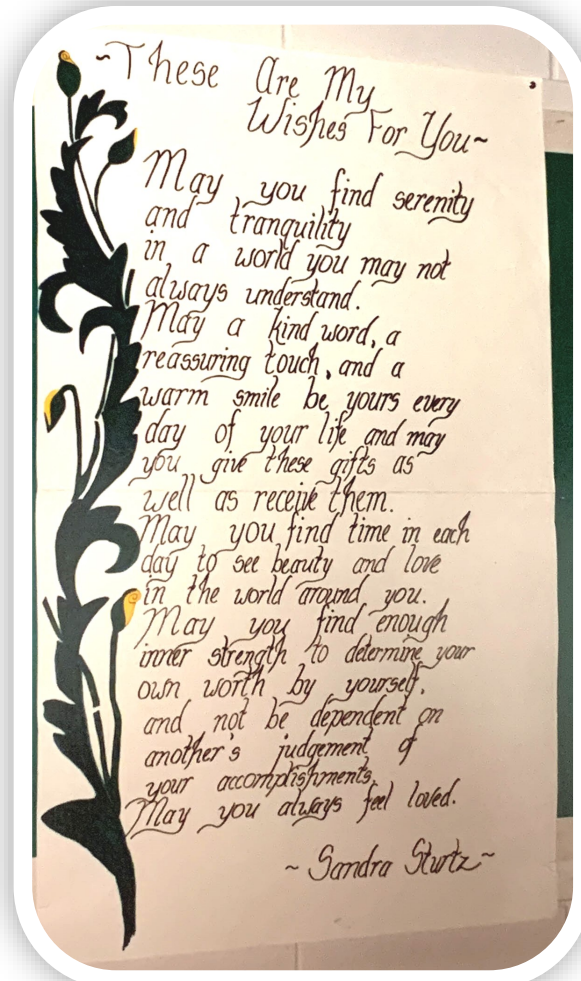 ~These Are My
Wishes For You~
May you find serenity
and tranquility
in a world you may not
always understand.
May a kind word, a
reassuring touch, and a
warm smile be yours every
day of your life and may
you give these gifts as
well as receive them.
May you find time in each
day to see beauty and love
in the world around you.
May you find enough
inner strength to determine your
own worth by yourself,
and not be dependent on
another's judgement of
your accomplishments.
May you always feel loved.
~Sandra Sturtz~